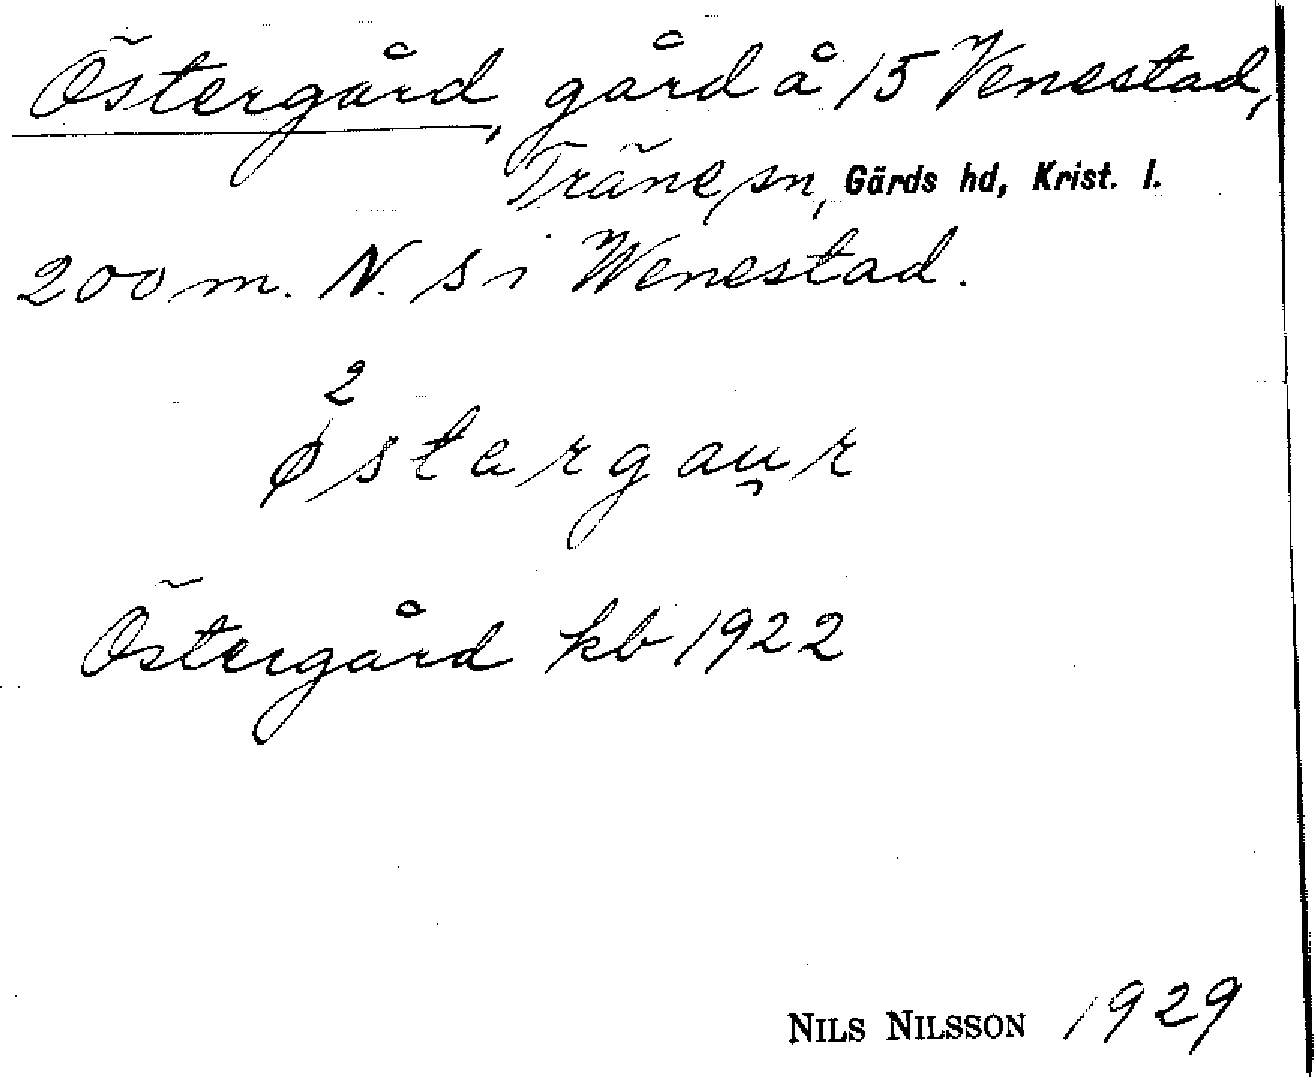 Östergård, gård å 15 Venestad,
Träne sn, Gärds hd, Krist. l.
200 m. N. s i Wenestad.
2
østargau̡r
Östergård kb 1922
NILS NILSSON 1929